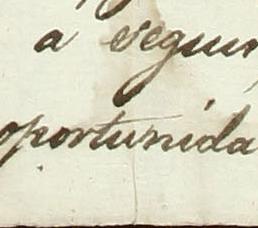 a segun
oportunida